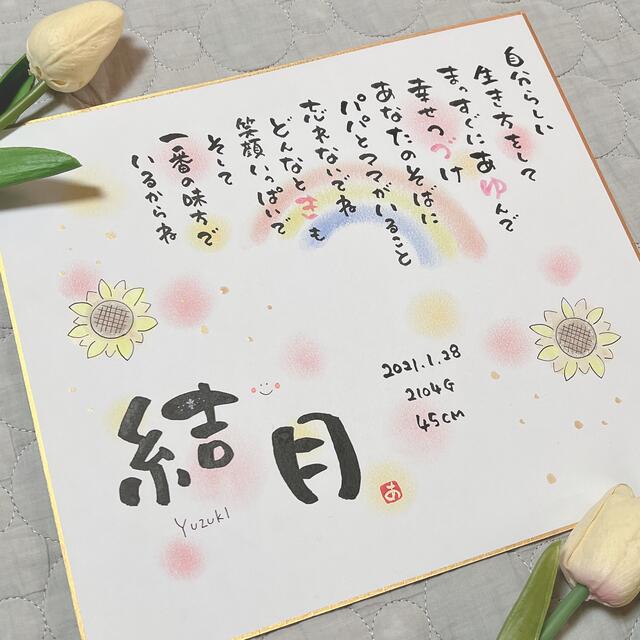 自分らしい
生き方をして
まっすぐにあゆんで
幸せつづけ
あなたのそばに
パパとママがいること
忘れないでね
どんなときも
笑顔いっぱいで
そして
一番の味方で
いるからね
2021.1.28
2104G
45CM
結月
YUZUKI
あ